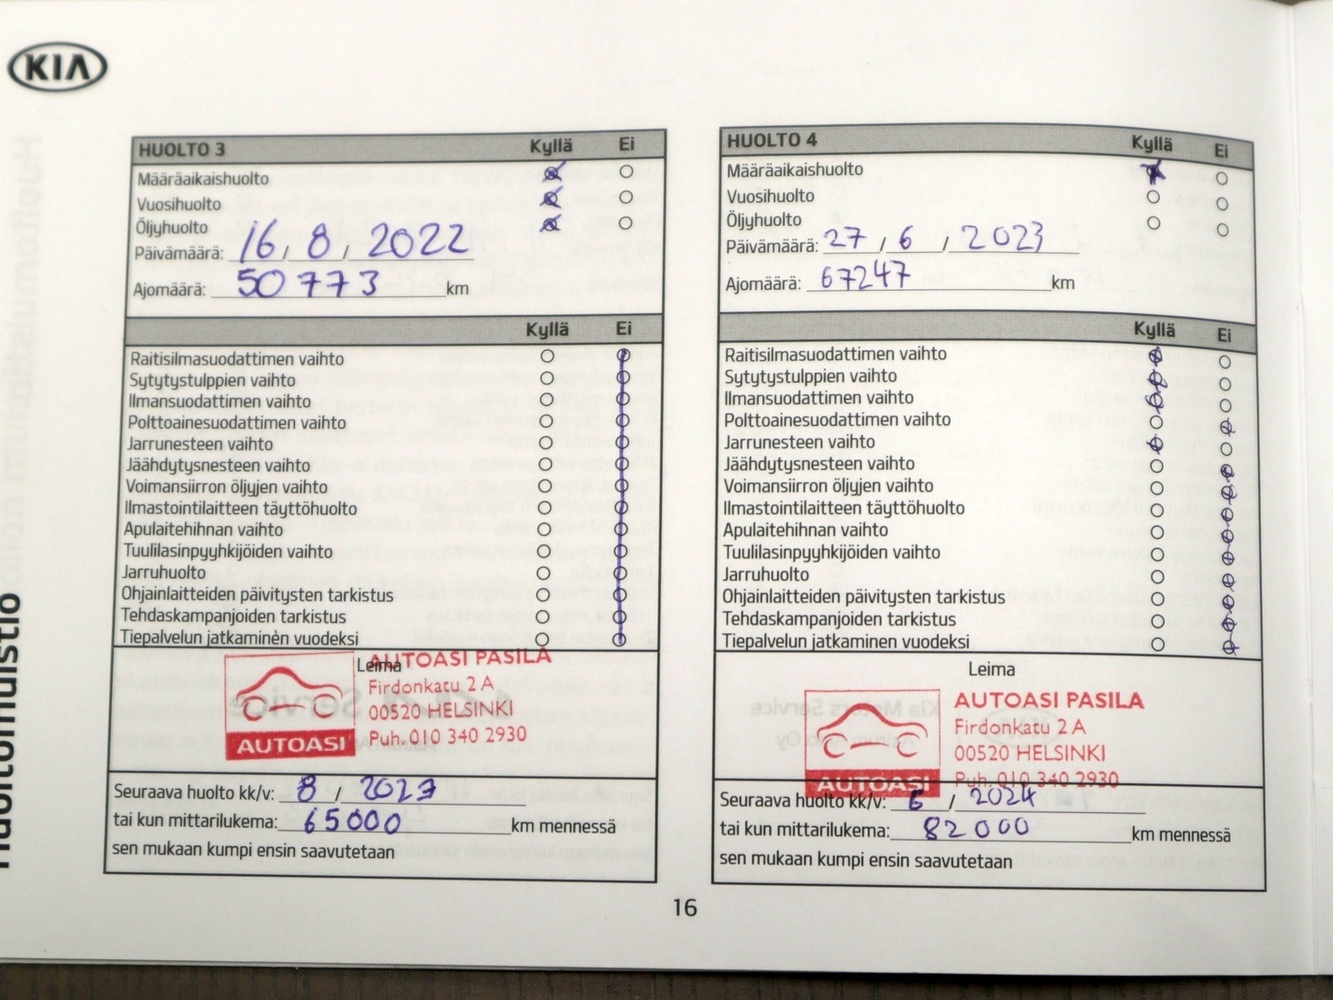 KIA
Huoltomuistio
HUOLTO 3 Kyllä Ei
Määräaikaishuolto
Vuosihuolto
Öljyhuolto
Päivämäärä: 16 / 8 / 2022
Ajomäärä: 50773 km
Kyllä Ei
Raitisilmasuodattimen vaihto
Sytytystulppien vaihto
Ilmansuodattimen vaihto
Polttoainesuodattimen vaihto
Jarrunesteen vaihto
Jäähdytysnesteen vaihto
Voimansiirron öljyjen vaihto
Ilmastointilaitteen täyttöhuolto
Apulaitehihnan vaihto
Tuulilasinpyyhkijöiden vaihto
Jarruhuolto
Ohjainlaitteiden päivitysten tarkistus
Tehdaskampanjoiden tarkistus
Tiepalvelun jatkaminen vuodeksi
Leima
AUTOASI PASILA
Firdonkatu 2 A
00520 HELSINKI
Puh. 010 340 2930
AUTOASI
Seuraava huolto kk/v: 8 / 2023
tai kun mittarilukema: 65000 km mennessä
sen mukaan kumpi ensin saavutetaan
HUOLTO 4 Kyllä Ei
Määräaikaishuolto
Vuosihuolto
Öljyhuolto
Päivämäärä: 27 / 6 / 2023
Ajomäärä: 67247 km
Kyllä Ei
Raitisilmasuodattimen vaihto
Sytytystulppien vaihto
Ilmansuodattimen vaihto
Polttoainesuodattimen vaihto
Jarrunesteen vaihto
Jäähdytysnesteen vaihto
Voimansiirron öljyjen vaihto
Ilmastointilaitteen täyttöhuolto
Apulaitehihnan vaihto
Tuulilasinpyyhkijöiden vaihto
Jarruhuolto
Ohjainlaitteiden päivitysten tarkistus
Tehdaskampanjoiden tarkistus
Tiepalvelun jatkaminen vuodeksi
Leima
AUTOASI PASILA
Firdonkatu 2 A
00520 HELSINKI
Puh. 010 340 2930
AUTOASI
Seuraava huolto kk/v: 6 / 2024
tai kun mittarilukema: 82000 km mennessä
sen mukaan kumpi ensin saavutetaan
16